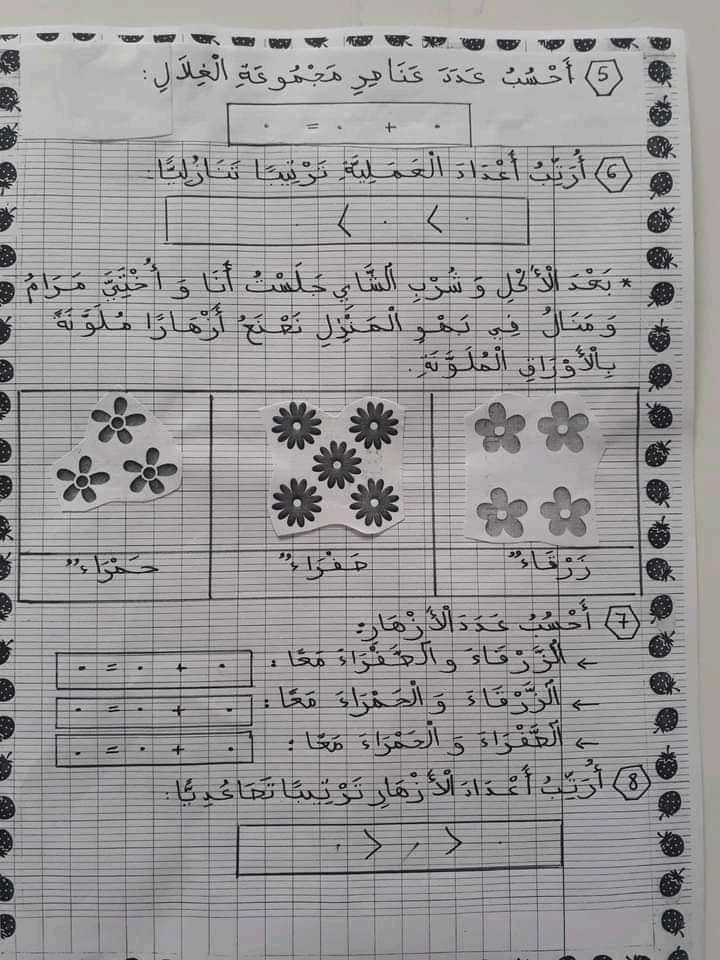 5 أَحْسُبُ عَدَدَ عَنَاصِرِ مَجْمُوعَةِ الْغِلَالِ:
. + . = .
6 أُرَتِّبُ أَعْدَادَ الْعَمَلِيَّةِ تَرْتِيبًا تَنَازُلِيًّا:
. > . > .
* بَعْدَ الْأَكْلِ وَ شُرْبِ الشَّايِ جَلَسْتُ أَنَا وَ أُخْتَيَّ مَرَامُ
وَ مَنَالُ فِي بَهْوِ الْمَنْزِلِ نَصْنَعُ أَزْهَارًا مُلَوَّنَةً
بِالْأَوْرَاقِ الْمُلَوَّنَةِ.
زَرْقَاءُ صَفْرَاءُ حَمْرَاءُ
7 أَحْسُبُ عَدَدَ الْأَزْهَارِ:
← الزَّرْقَاءَ و الصَّفْرَاءَ مَعًا: . + . = .
← الزَّرْقَاءَ وَ الْحَمْرَاءَ مَعًا: . + . = .
← الصَّفْرَاءَ وَ الْحَمْرَاءَ مَعًا: . + . = .
8 أُرَتِّبُ أَعْدَادَ الْأَزْهَارِ تَرْتِيبًا تَصَاعُدِيًّا:
. < . < .